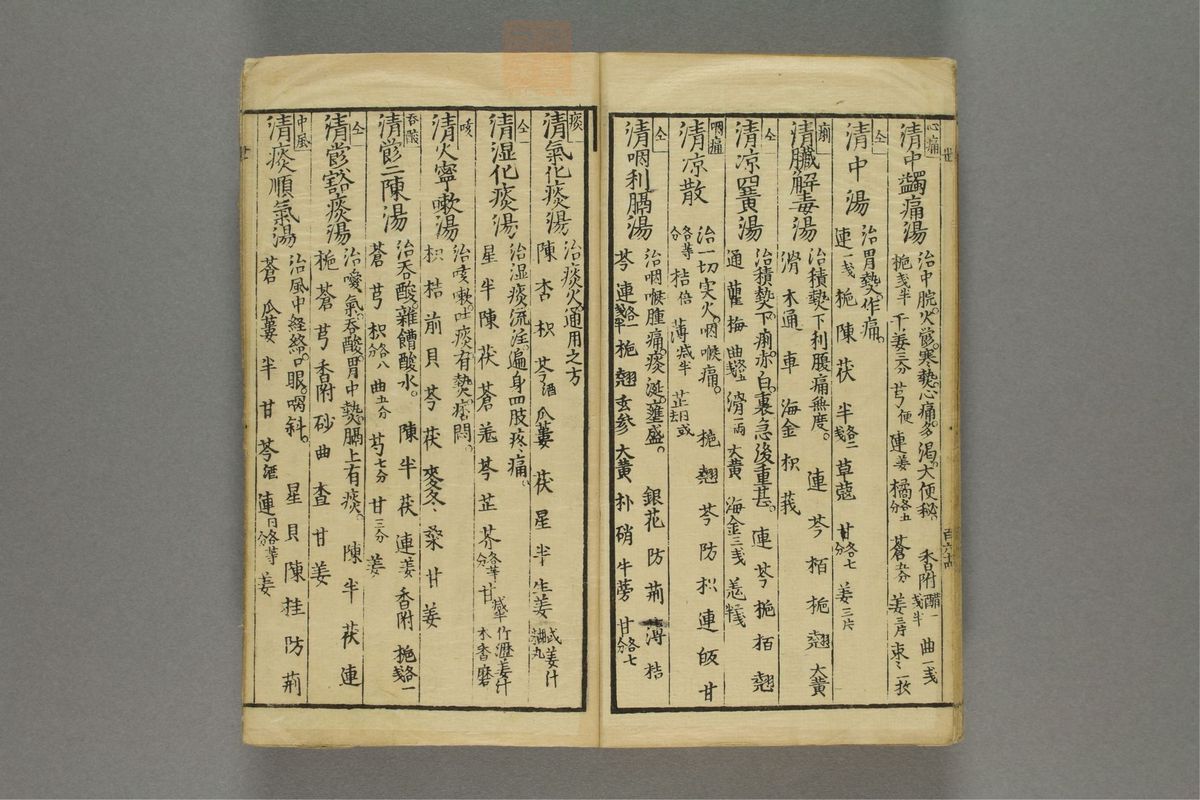 心痛
清中蠲痛湯
治中脘火欝。寒熱心痛。多渴。大便秘。
香附醋一戋半 曲一戋
梔戋半 干姜三分 芎便 連姜 橘各五分 蒼五分 姜三片 束〻一枚
仝
清中湯
治胃熱。作痛。
連一戋 梔 陳 茯 半各二戋 草蔻 甘各七分 姜三片
痢
清臟解毒湯
治積熱下利腹痛無度。
連 芩 栢 梔 翹 大黄
滑 木通 車 海金 枳 莪
仝
清凉四黄湯
治積熱下痢。赤白。裏急後重甚。
連 芩 梔 栢 翹
通 蘿 梅 曲各五戋 滑一両 大黄 海金三戋
咽痛
清凉散
治一切実火。咽喉痛。
梔 翹 芩 防 枳 連 甘
各等分 桔倍 薄减半 芷
仝
清咽利膈湯
治咽喉腫痛。痰涎。壅盛。
銀花 防 荊 薄 桔
芩 連各一戋半 梔 翹 玄参 大黄 朴 硝 牛蒡 甘各七分
痰
清氣化痰湯
治痰火。通用之方
陳 杏 枳 芩酒 瓜蔞 茯 星 半 生姜
仝
清湿化痰湯
治湿痰。流注。遍身四肢疼痛。
星 半 陳 茯 蒼 羗 芩 芷 芥各等分 甘减半 竹瀝姜汁 木香磨
咳
清火寧嗽湯
治咳嗽。吐痰。有熱痞悶。
枳 桔 前 貝 芩 茯 麥冬 桑 甘 姜
呑酸
清欝二陳湯
治呑酸。雜饐酸水。
陳 半 茯 連姜 香附 梔各一戋
蒼 芎 枳各八分 曲五分 芍七分 甘三分 姜
仝
清欝豁痰湯
治噯氣。呑酸胃中熱。膈上有痰。
陳 半 茯 連
梔 蒼 芎 香附 砂 曲 查 甘 姜
中風
清痰順氣湯
治風中経絡。口眼。喎斜。
星 貝 陳 桂 防 荊
蒼 瓜蔞 半 甘 芩酒 連日各等分 姜